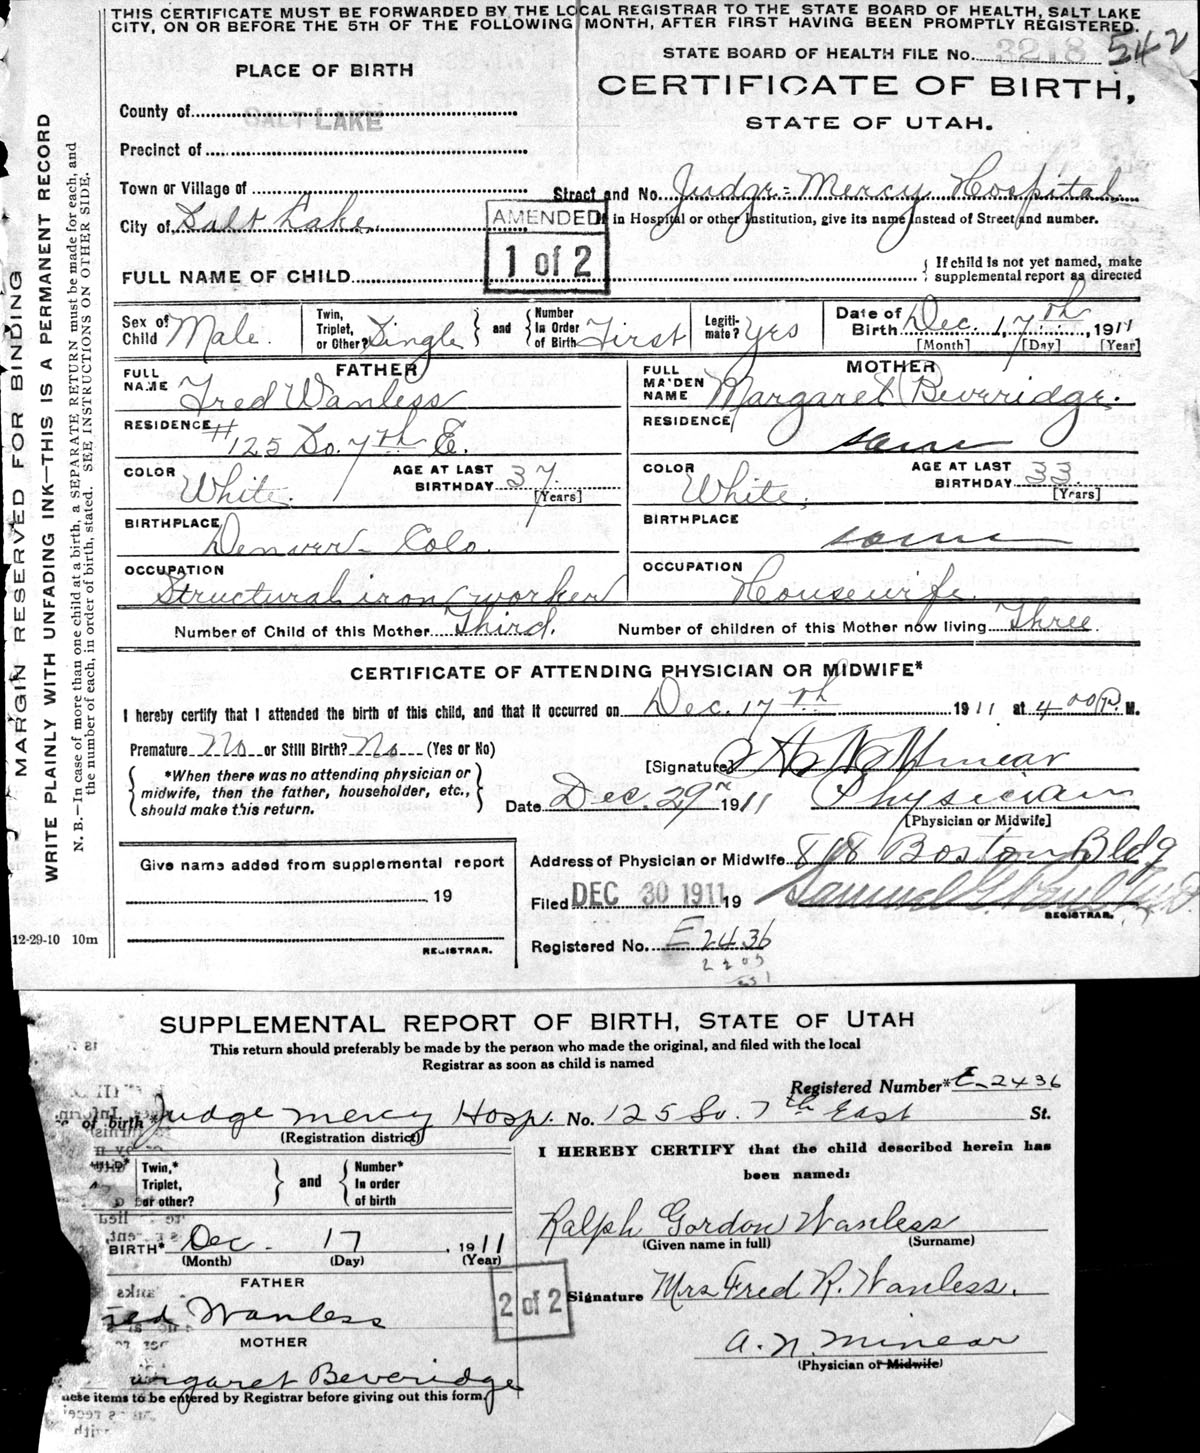 THIS CERTIFICATE MUST BE FORWARDED BY THE LOCAL REGISTRAR TO THE STATE BOARD OF HEALTH, SALT LAKE
CITY, ON OR BEFORE THE 5TH OF THE FOLLOWING MONTH, AFTER FIRST HAVING BEEN PROMPTLY REGISTERED.
STATE BOARD OF HEALTH FILE No. 3218 542
PLACE OF BIRTH
CERTIFICATE OF BIRTH,
STATE OF UTAH.
County of SALT LAKE
Precinct of
Town or Village of
Street and No. Judge Mercy Hospital
City of Salt Lake
AMENDED
1 of 2
If in Hospital or other Institution, give its name instead of Street and number.
FULL NAME OF CHILD
If child is not yet named, make
supplemental report as directed
Sex of Child Male
Twin, Triplet, or Other? Single and Number In Order of Birth First
Legitimate? Yes
Date of Birth Dec. 17th, 1911
[Month] [Day] [Year]
FATHER
MOTHER
FULL NAME Fred Wanless
FULL MAIDEN NAME Margaret Beveridge.
RESIDENCE #125 So. 7th E.
RESIDENCE same
COLOR White. AGE AT LAST BIRTHDAY 37 [Years]
COLOR White. AGE AT LAST BIRTHDAY 33 [Years]
BIRTHPLACE Denver Colo.
BIRTHPLACE same
OCCUPATION Structural iron worker
OCCUPATION Housewife.
Number of Child of this Mother Third. Number of children of this Mother now living Three.
CERTIFICATE OF ATTENDING PHYSICIAN OR MIDWIFE*
I hereby certify that I attended the birth of this child, and that it occurred on Dec. 17th 1911 at 4 00 P. M.
Premature No or Still Birth? No (Yes or No)
*When there was no attending physician or
midwife, then the father, householder, etc.,
should make this return.
[Signature] Minear
Date Dec. 29 1911 Physician
[Physician or Midwife]
Give name added from supplemental report
19
REGISTRAR.
Address of Physician or Midwife 818 Boston Bldg
Filed DEC 30 1911 19 Samuel G.
REGISTRAR.
Registered No. E 2436
2203
12-29-10 10m
MARGIN RESERVED FOR BINDING
WRITE PLAINLY WITH UNFADING INK—THIS IS A PERMANENT RECORD
N. B.—In case of more than one child at a birth, a SEPARATE RETURN must be made for each, and
the number of each, in order of birth, stated. SEE INSTRUCTIONS ON OTHER SIDE.
SUPPLEMENTAL REPORT OF BIRTH, STATE OF UTAH
This return should preferably be made by the person who made the original, and filed with the local
Registrar as soon as child is named
Registered Number* E-2436
of birth* Judge Mercy Hosp. No. 125 So. 7th East St.
(Registration district)
Twin,* Triplet, or other? and Number* In order of birth
I HEREBY CERTIFY that the child described herein has
been named:
BIRTH* Dec. 17, 1911
(Month) (Day) (Year)
Ralph Gordon Wanless
(Given name in full) (Surname)
FATHER
red Wanless
2 of 2
Signature Mrs Fred R. Wanless.
MOTHER
argaret Beveridge
A. N. Minear
(Physician or Midwife)
hese items to be entered by Registrar before giving out this form.